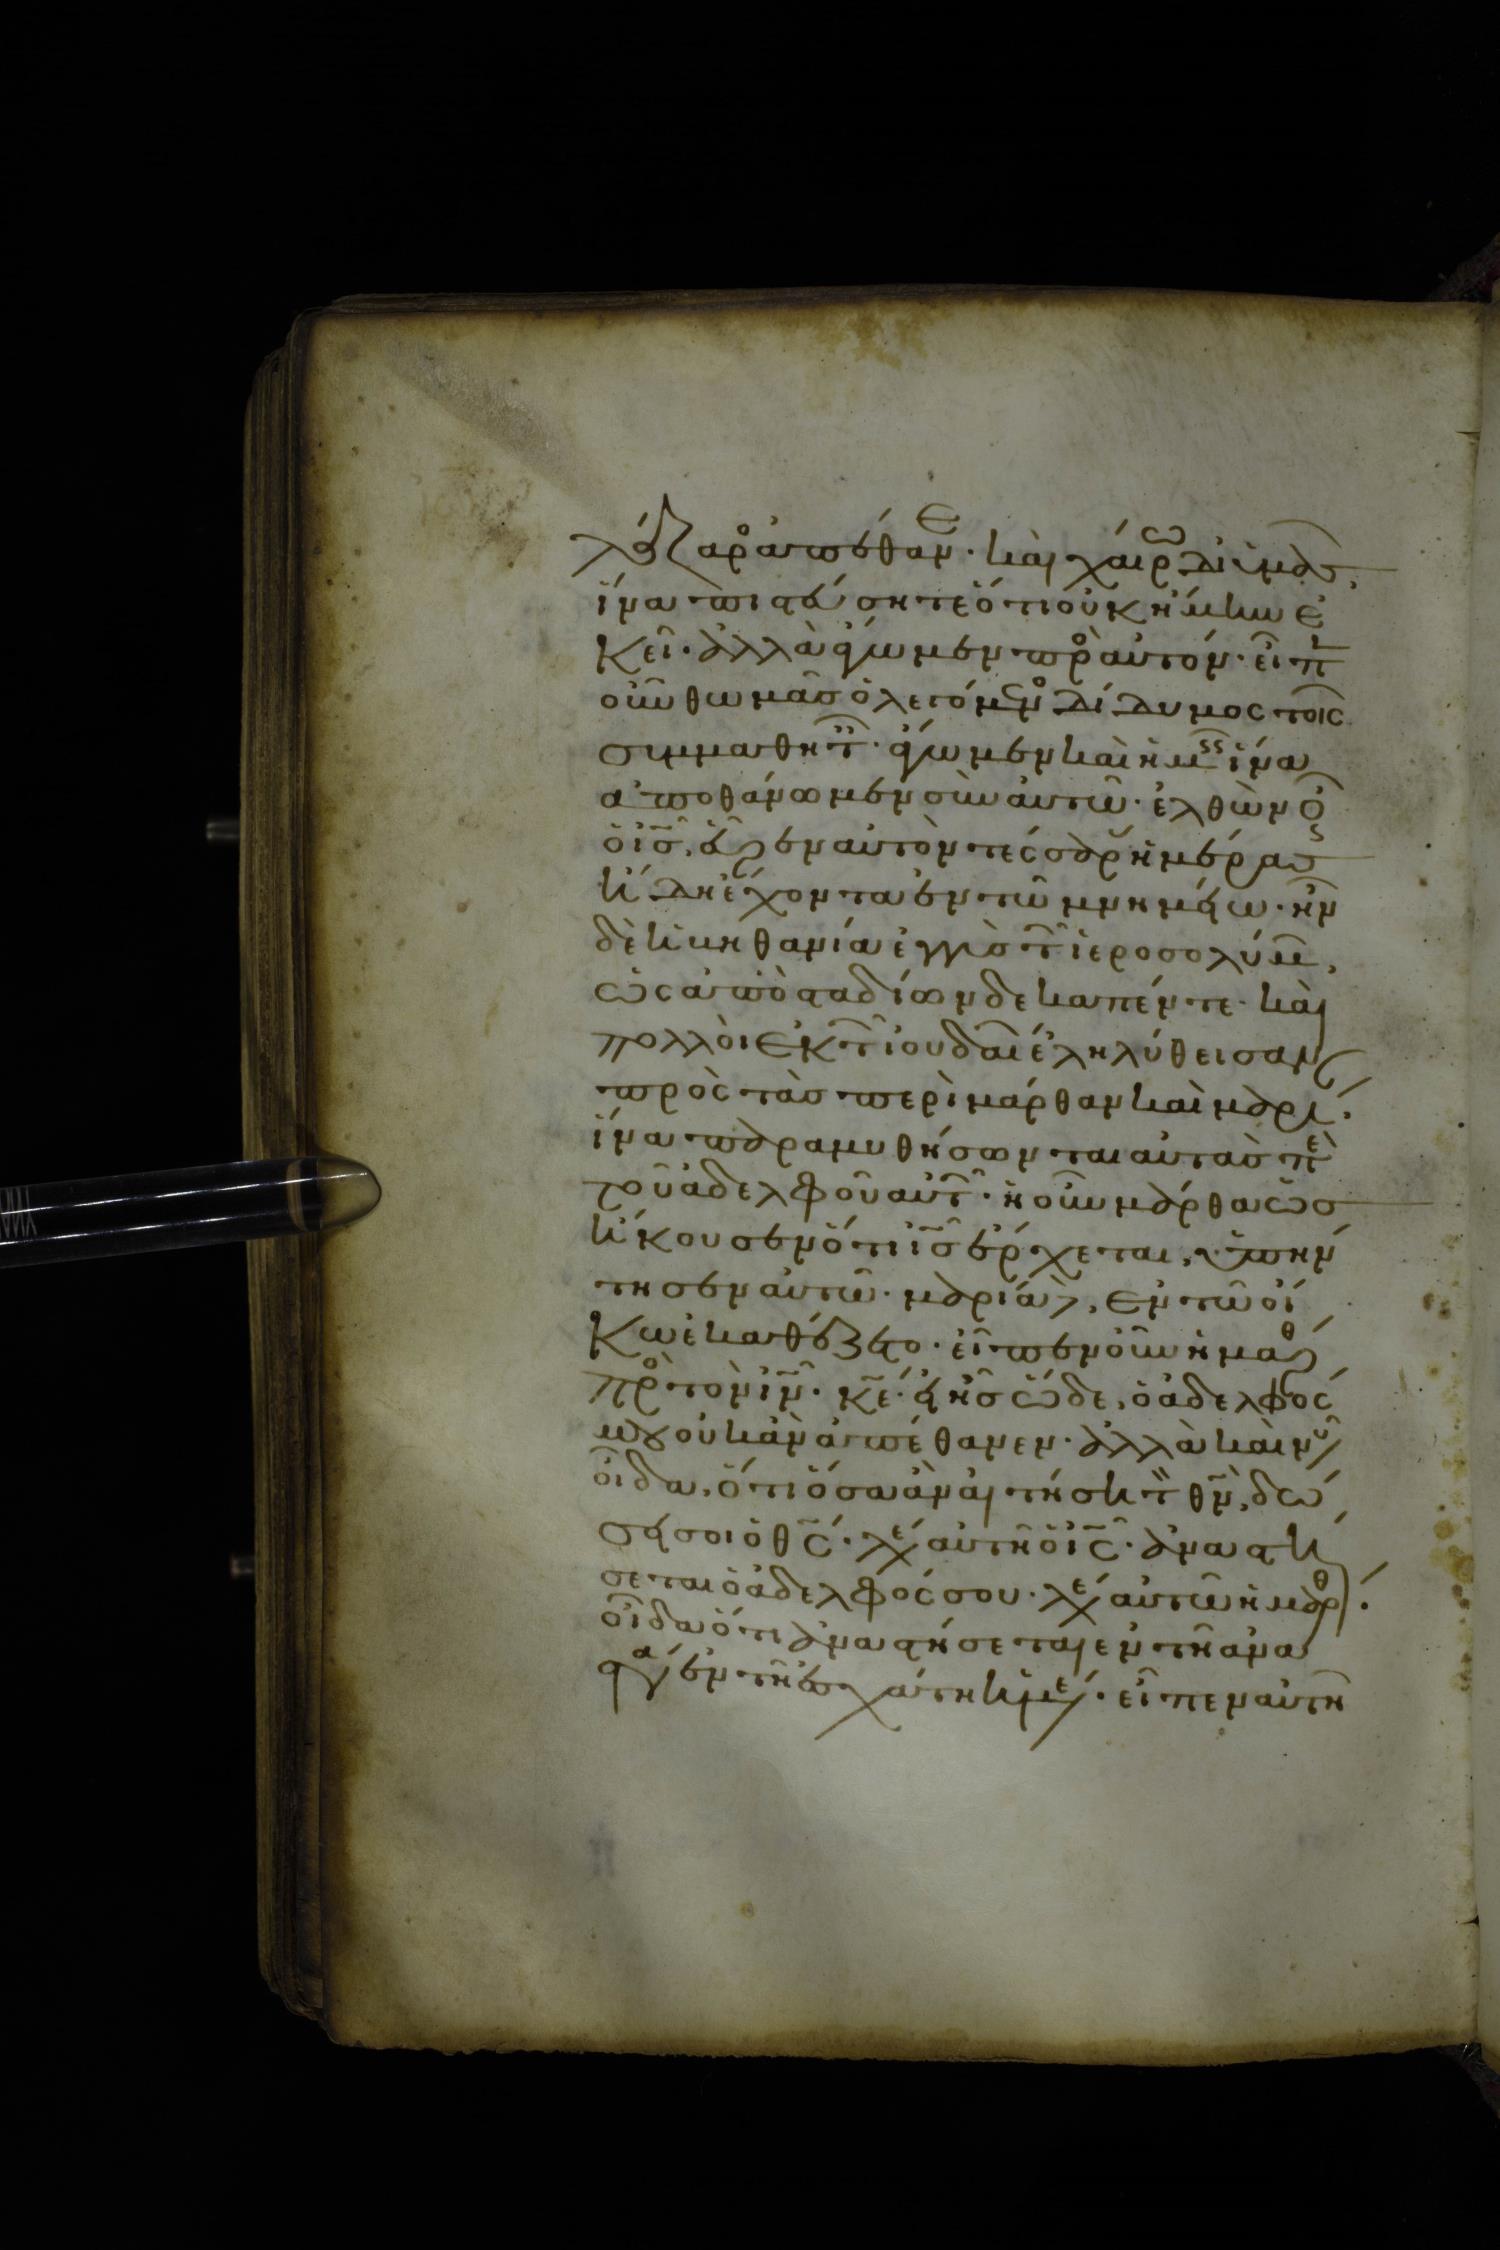 λάζαρο ἀπέθανε· καὶ χαίρω δι ὑμᾶς,
ἵνα πιστεύσητε ὅτι οὐκ ἤμην ἐ
κεῖ· ἀλλὰ ἄγωμεν πρὸ αὐτόν· εἶπ
οὖν θωμᾶσ ὁ λεγόμενο δίδυμος τοῖς
συμμαθητ· ἄγωμεν καὶ ἡμεῖς ἵνα
ἀποθάνωμεν σὺν αὐτῶ· ἐλθὼν ὁ
ὁ ις, εὗρεν αὐτὸν τέσσαρ ἡμέρασ
ἤδη ἔχοντα ἐν τῶ μνημείω· ἦν
δὲ ἡ βηθανία ἐγγὺσ τ ἱεροσολύμ,
ὡς ἀπὸ σταδίων δεκαπέντε· καὶ
πολλοὶ ἐκ τ ἰουδαί ἐληλύθεισαν
πρὸς τὰσ περὶ μάρθαν καὶ μαρί·
ἵνα παραμυθήσωνται αὐτὰσ πε
τοῦ ἀδελφοῦ αὐτ· ἡ οὖν μάρθα ὡσ
ἤκουσεν ὅτι ισ ἔρχεται, ὑπήν
τησεν αὐτῶ· μαρία δ, ἐν τῶ οἴ
κω ἐκαθέζετο· εἶπεν οὖν ἡ μαθ
πρὸ τὸν ιν· κε· εἰ ἦσ ὧδε, ὁ ἀδελφός
μου οὐκ ἂν ἀπέθανεν· ἀλλὰ καὶ νῦ
οἶδα, ὅτι ὅσα ἂν αἰτήση τ θν, δώ
σει σοι ὁ θς· λέγει αὐτῆ ὁ ις· ἀναστή
σεται ὁ ἀδελφός σου· λέγει αὐτῶ ἡ μαρθ·
οἶδα ὅτι ἀναστήσεται ἐν τῆ ἀνα
στα ἐν τῆ ἐσχάτη ἡμέ· εἶπεν αὐτῆ